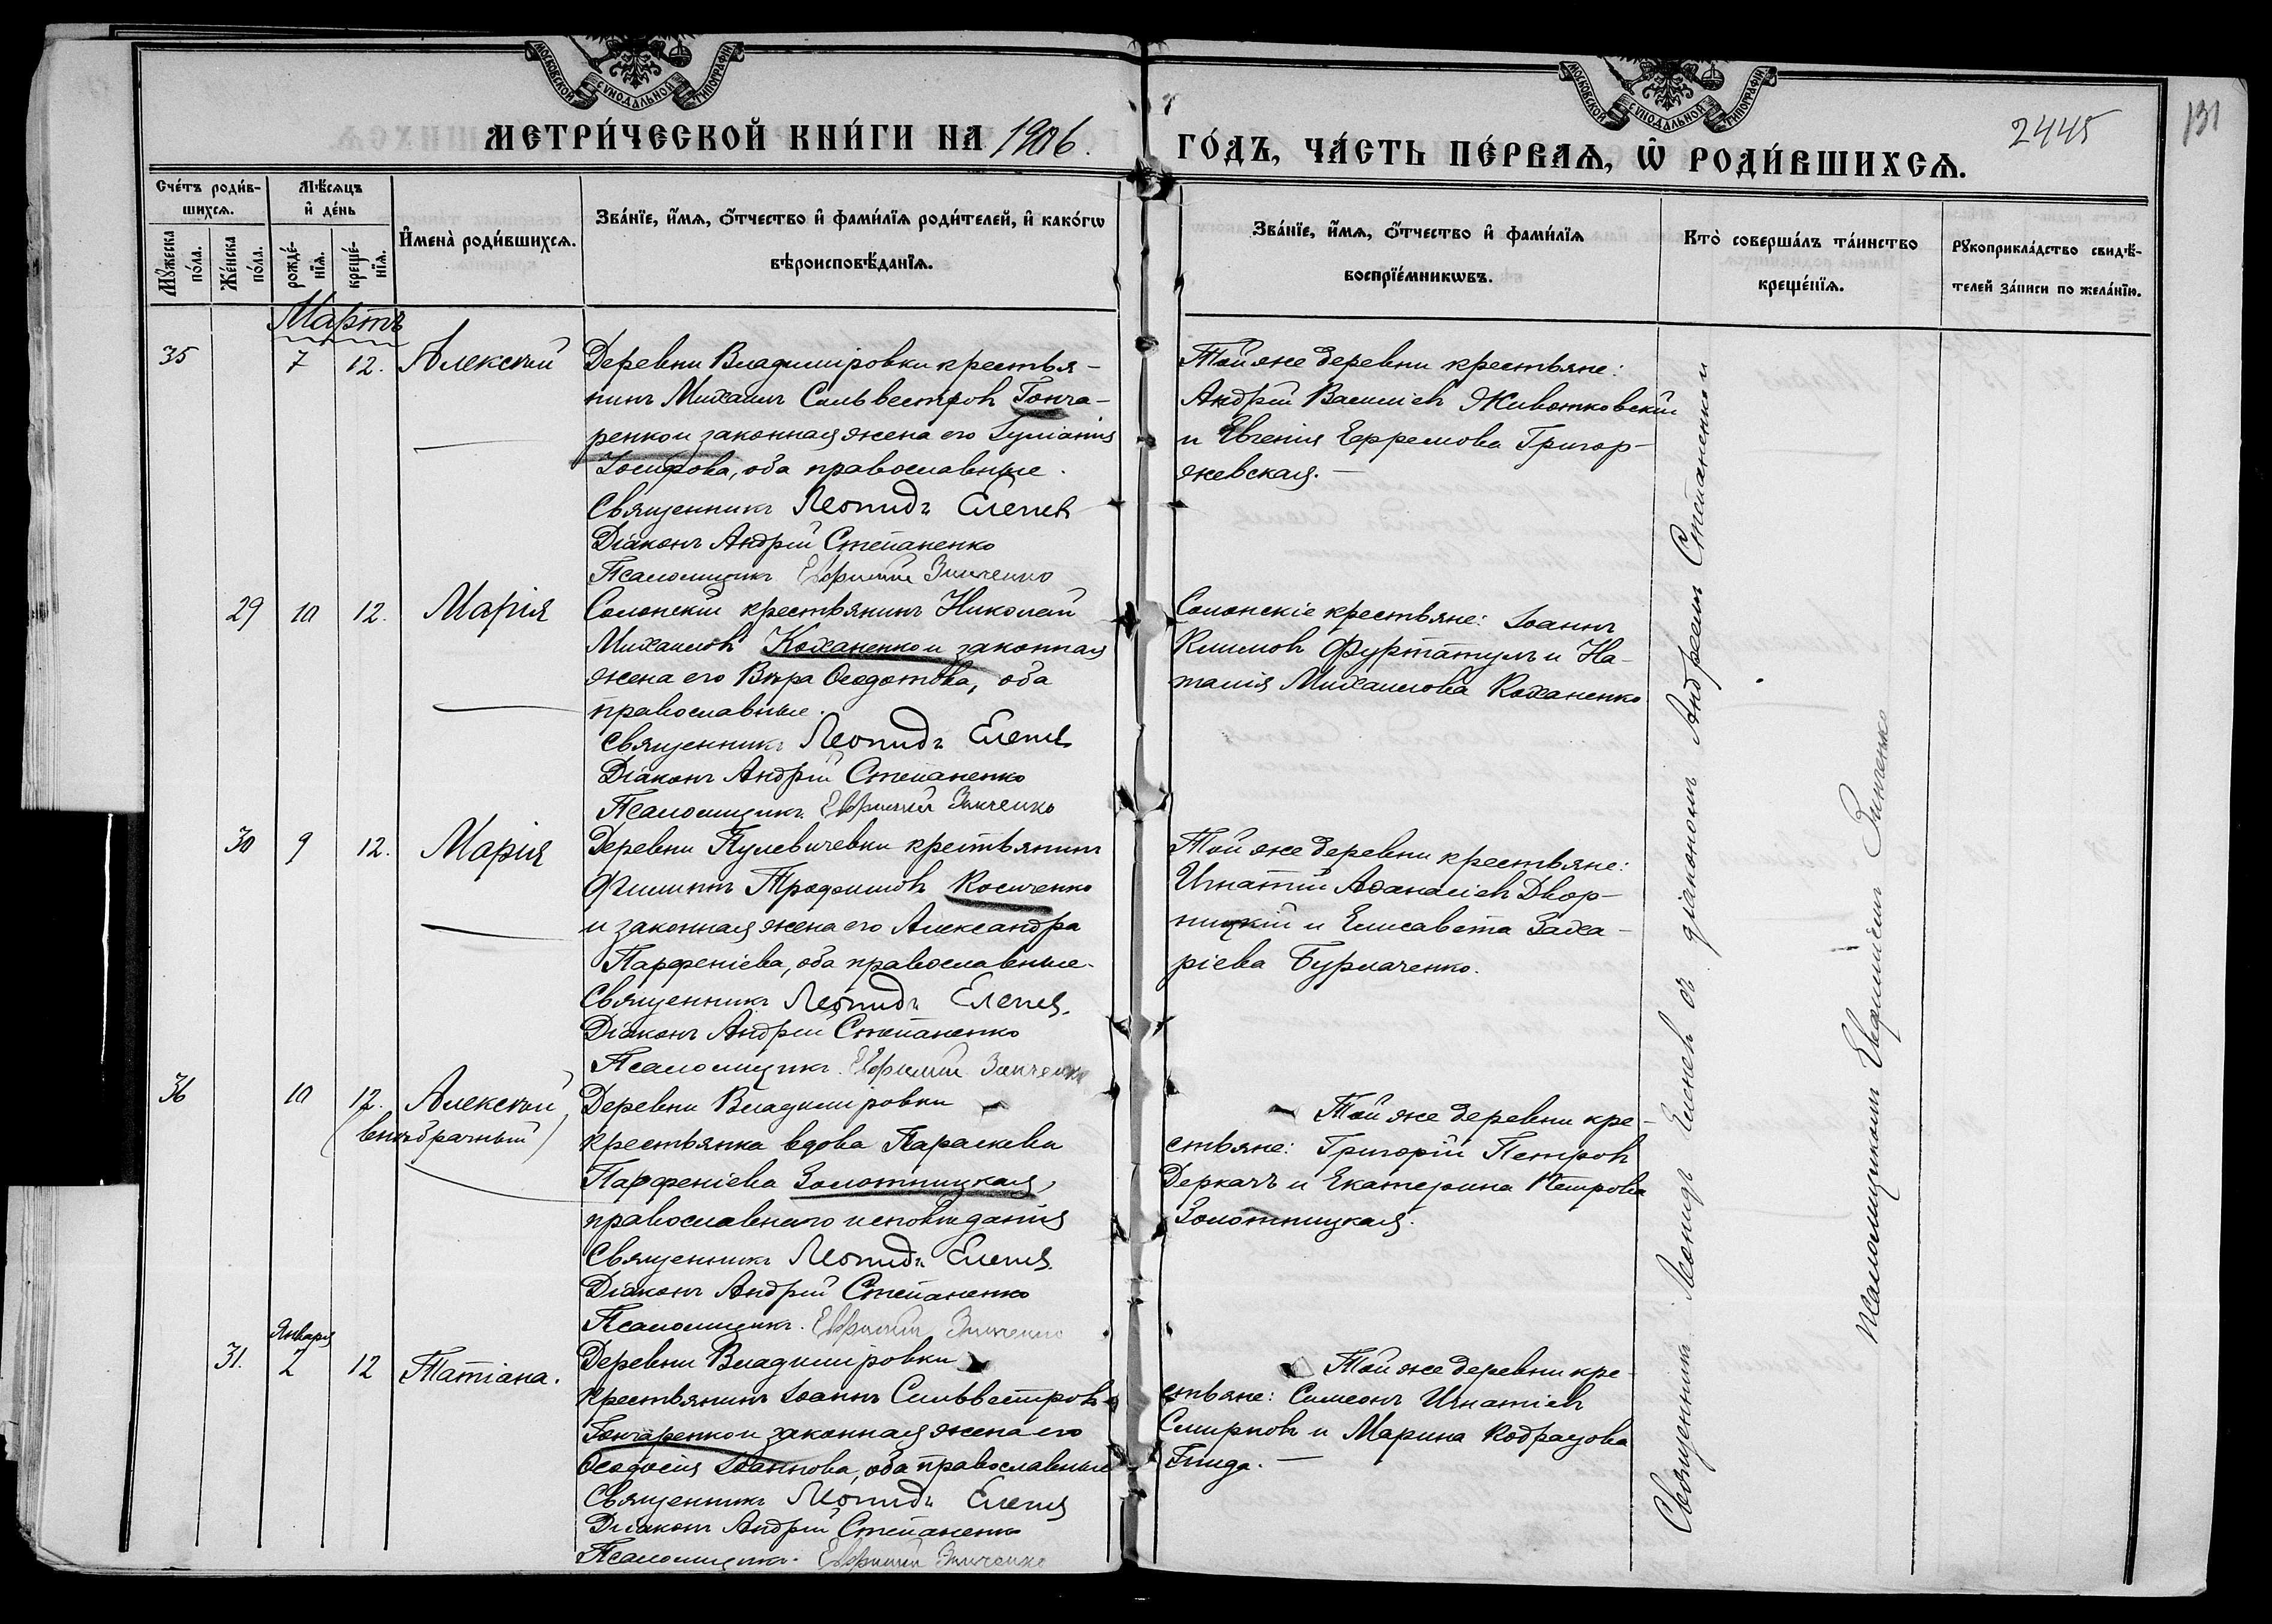 МОСКОВСКОЙ СУНОДАЛЬНОЙ ТИПОГРАФІИ
МОСКОВСКОЙ СУНОДАЛЬНОЙ ТИПОГРАФІИ
МЕТРИ́ЧЕСКОЙ КНИ́ГИ НА 1906.
ГО́ДЪ, ЧА́СТЬ ПЕ́РВАѦ, Ѡ҆ РОДИ́ВШИХСѦ.
2445
131
Сче́тъ роди́в-
шихсѧ.
Мꙋ́жеска
по́ла.
Же́нска
по́ла.
Мѣ́сѧцъ
и҆ де́нь
рожде́-
нїѧ.
креще́-
нїѧ.
И҆мена̀ роди́вшихсѧ.
Зва́нїе, и҆́мѧ, ѻ҆́тчество и҆ фами́лїѧ роди́телей, и҆ како́гѡ
вѣроисповѣ́данїѧ.
Зва́нїе, и҆́мѧ, ѻ҆́тчество и҆ фами́лїѧ
воспрїе́мникѡвъ.
Кто̀ соверша́лъ та́инство
креще́нїѧ.
Рꙋкоприкла́дство свидѣ́-
телей за́писи по жела́нїю.
Мартъ
35 7 12. Алексѣй
Деревни Владиміровки крестья-
нинъ Михаилъ Сильвестровъ Гонча-
ренко и законная жена его Іуліанія
Іосифова, оба православные.
Священникъ Леонидъ Еленев
Діаконъ Андрей Степаненко
Псаломщикъ Евфимій Зинченко
Той же деревни крестьяне:
Андрей Василіевъ Животковскій
и Евгенія Ефремова Григор-
жевская.
29 10 12. Марія
Солонскій крестьянинъ Николай
Михаиловъ Коханенко и законная
жена его Вѣра Ѳеодотова, оба
православные.
Священникъ Леонидъ Еленев
Діаконъ Андрей Степаненко
Псаломщикъ Евфимій Зинченко
Солонскіе крестьяне: Іоаннъ
Климовъ Фуртатулъ и На-
талія Михаилова Коханенко
30 9 12. Марія
Деревни Пулевичевки крестьянинъ
Филиппъ Трофимовъ Косиченко
и законная жена его Александра
Парфеніева, оба православные.
Священникъ Леонидъ Еленев.
Діаконъ Андрей Степаненко
Псаломщикъ Евфимій Зинченко
Той же деревни крестьяне:
Игнатій Аѳанасіевъ Двор-
ницкій и Елисавета Заха-
ріева Бурлаченко.
36 10 12. Алексѣй
(внѣбрачный)
Деревни Владиміровки
крестьянка вдова Параскева
Парфеніева Золотницкая,
православнаго исповѣданія
Священникъ Леонидъ Еленев.
Діаконъ Андрей Степаненко
Псаломщикъ. Евфимій Зинченко
Той же деревни кре-
стьяне: Григорій Петровъ
Деркачъ и Екатерина Петрова
Золотницкая.
Января
31. 2 12 Татіана.
Деревни Владиміровки
крестьянинъ Іоаннъ Сильвестровъ
Гончаренко и законная жена его
Ѳеодосія Іоаннова, оба православные
Священникъ Леонидъ Еленев
Діаконъ Андрей Степаненко
Псаломщикъ. Евфимій Зинченко
Той же деревни кре-
стьяне: Симеонъ Игнатіевъ
Смирновъ и Марина Кодратова
Гнида.
Священникъ Леонидъ Еленевъ съ діакономъ Андреемъ Степаненко и
псаломщикомъ Евфиміемъ Зинченко